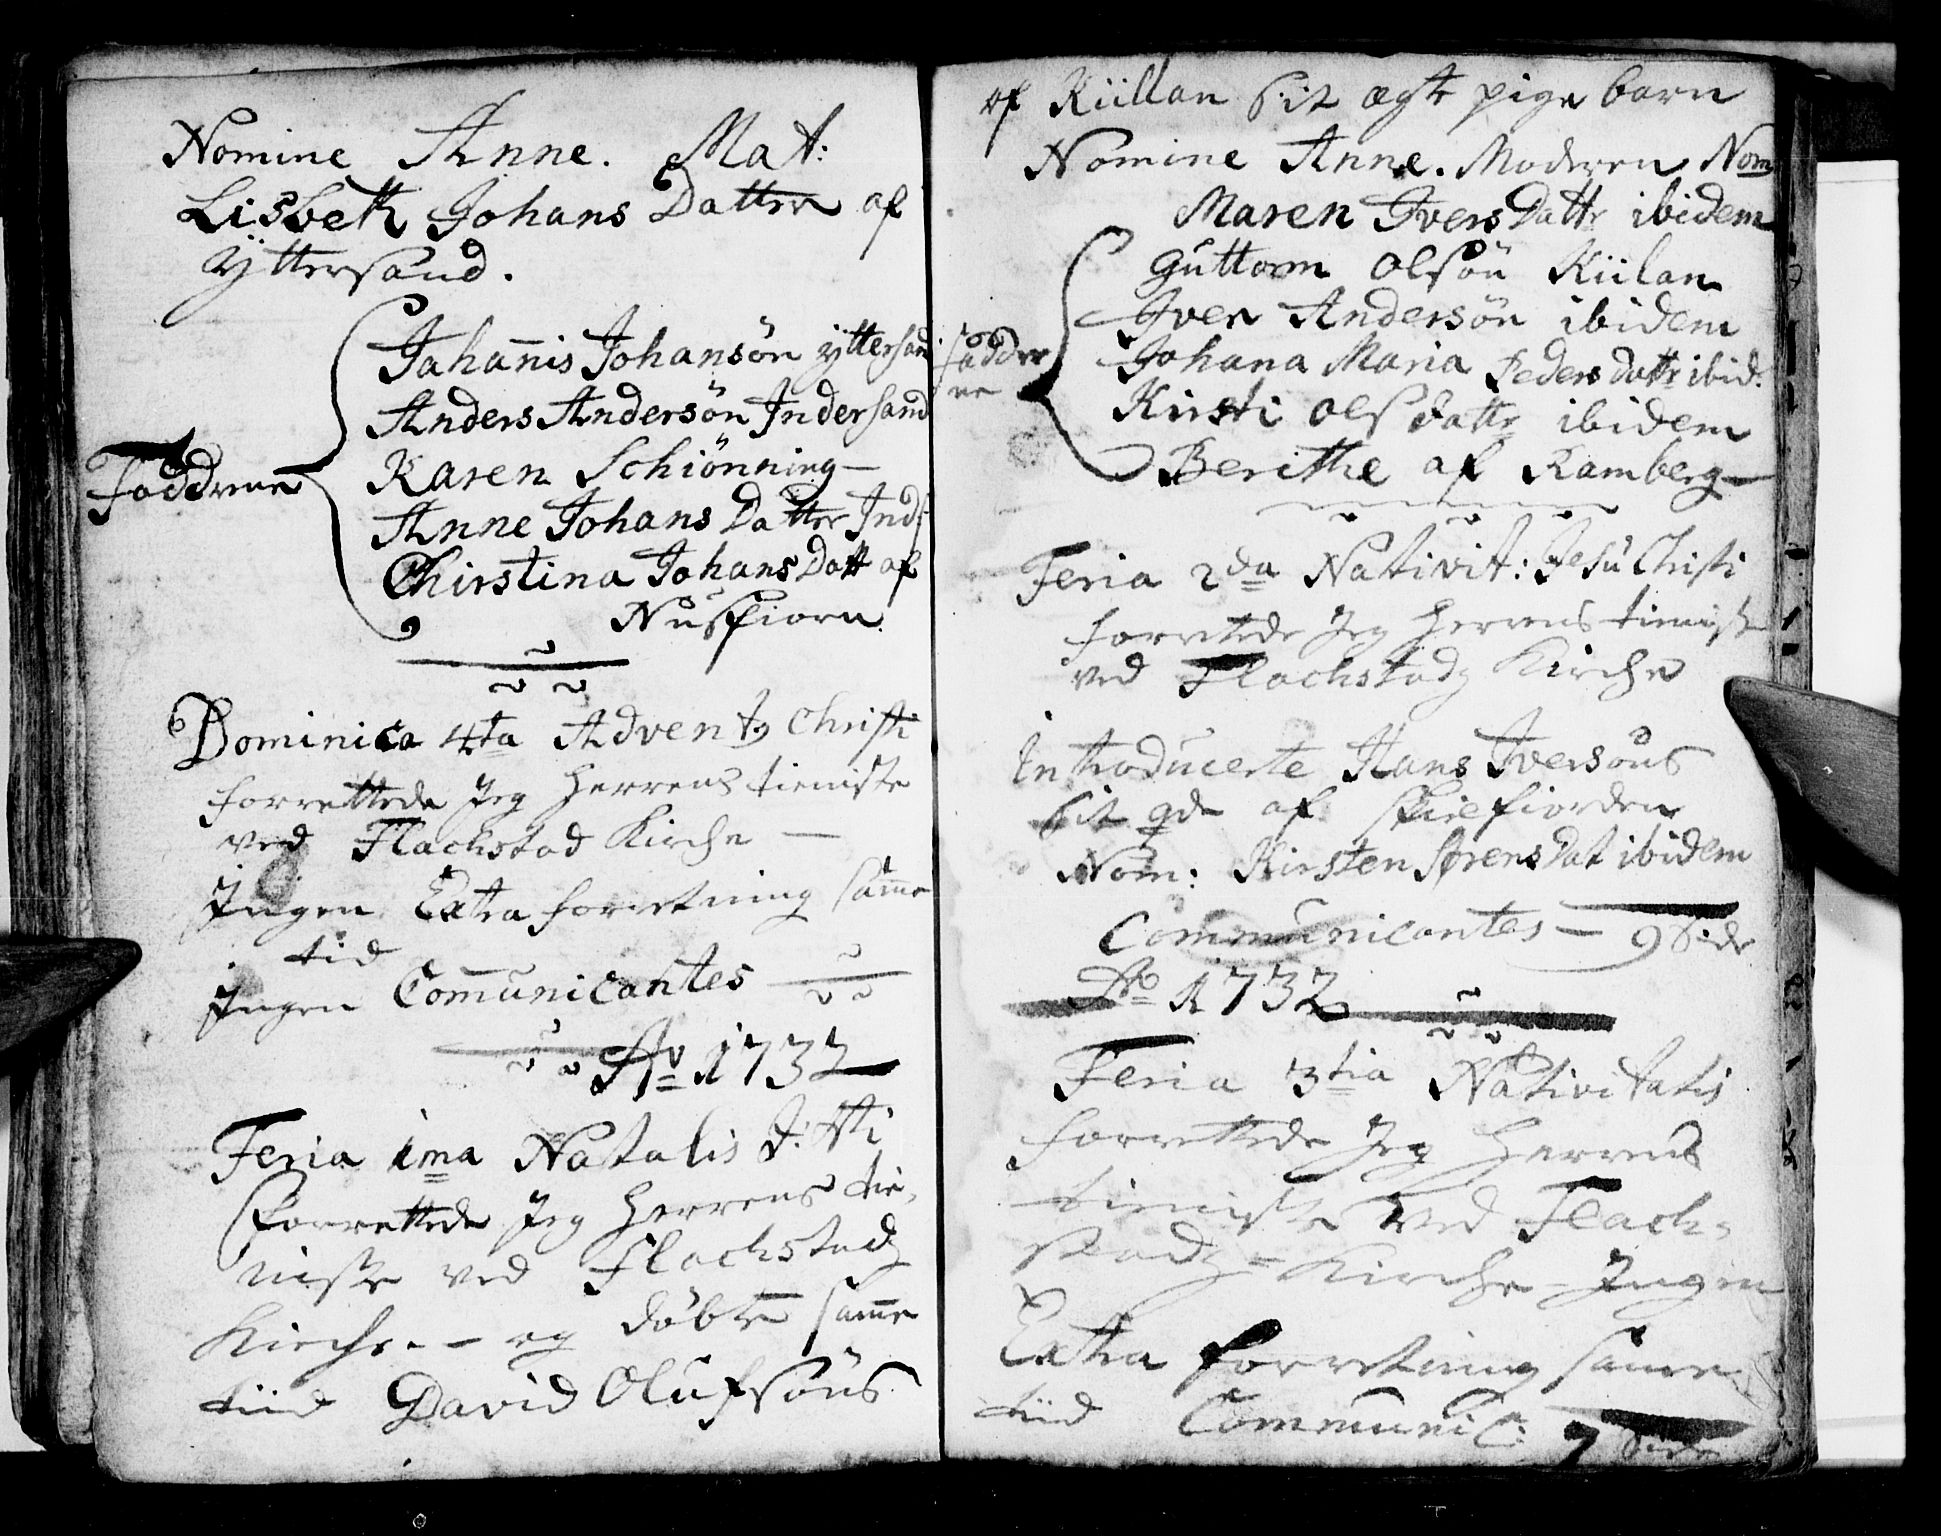 Nomine Anne. Mat:
Lisbeth Johans Datter af
Yttersand.
Johannis Johansön Yttersand
Anders Andersön Indersand
Karen Schiönning —
Faddrene
Anne Johans Datter Inds:
Chirstina Johans Datt af
Nusfiorn.
Dominica 4ta Advent9 Christi
forrettede Jeg Herrens tieniste
ved Flachstad Kirche —
Ingen Extra forretning samme
tid
Ingen Communicantes
Ao 1732
Feria 1ma Natalis J: Xti
forrettede Jeg Herrens tie-
niste ved Flachstad
Kirche. — og döbte samme
tiid David Olufsöns
af Kiillan sit ægte pige barn
Nomine Anne. Moderen Nom
Maren Ivers Dattr ibidem
Guttorm Olsön Kiilan
Iver Andersön ibidem
Faddre
ne
Johana Maria Peders Dattr ibid:
Kirsti Olsdattr ibidem
Berithe af Ramberg —
Feria 2da Nativit: Jesu Christi
forrettede Jeg Herrens tieniste
ved Flachstad Kirche
Introducerte Hans Iversöns
sit qde af Skielfiorden
Nom: Kirsten Sörens Dat ibidem
Communicantes — 9 Side
Ao 1732
Feria 3tia Nativitatis
forrettede Jeg Herrens
tieniste ved Flach-
stad — Kirche — Ingen
Extra forretning samme
tiid Communic: 7